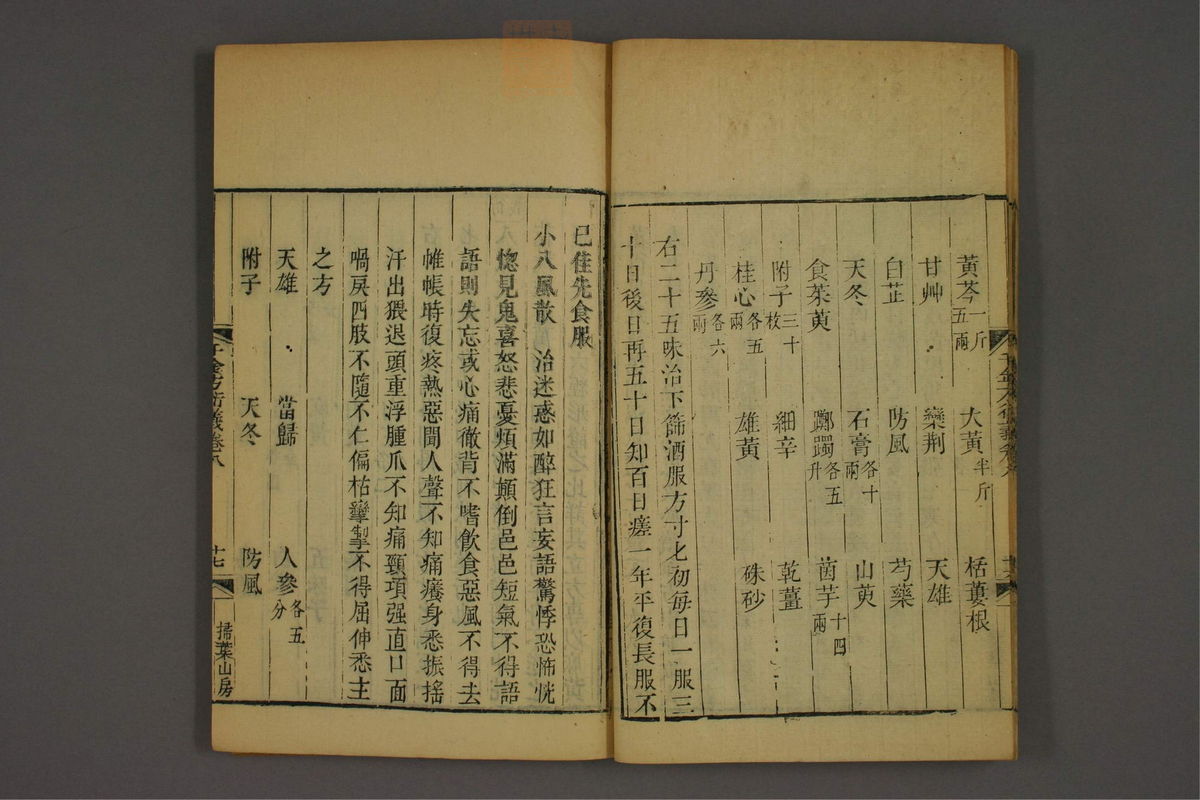 黃芩一斤五兩　大黃半斤　栝蔞根
甘艸　欒荆　天雄
白芷　防風　芍藥
天冬　石膏各十兩　山萸
食茱萸　躑躅各五升　茵芋十四兩
附子三十枚　細辛　乾薑
桂心各五兩　雄黃　硃砂
丹參各六兩
右二十五味治下篩酒服方寸匕初每日一服三
十日後日再五十日知百日瘥一年平復長服不
已佳先食服
小八風散　治迷惑如醉狂言妄語驚悸恐怖恍
惚見鬼喜怒悲憂煩滿顛倒邑邑短氣不得語
語則失忘或心痛徹背不嗜飲食惡風不得去
帷帳時復疼熱惡聞人聲不知痛癢身悉振搖
汗出猥退頭重浮腫爪不知痛頸項强直口面
喎戾四肢不隨不仁偏枯攣掣不得屈伸悉主
之方
天雄　當歸　人參各五分
附子　天冬　防風
千金方衍義卷八
廿七
掃葉山房